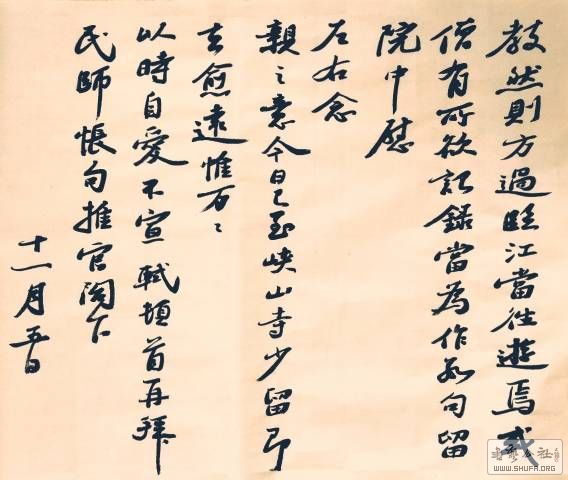 教然則方過臨江當往遊焉或
僧有所欲記錄當為作數句留
院中慰
左右念
親之意今日已至峽山寺少留即
去愈遠惟万〻
以時自愛不宣軾頓首再拜
民師帳句推官閣下
十一月五日
WWW.SHUFA.ORG